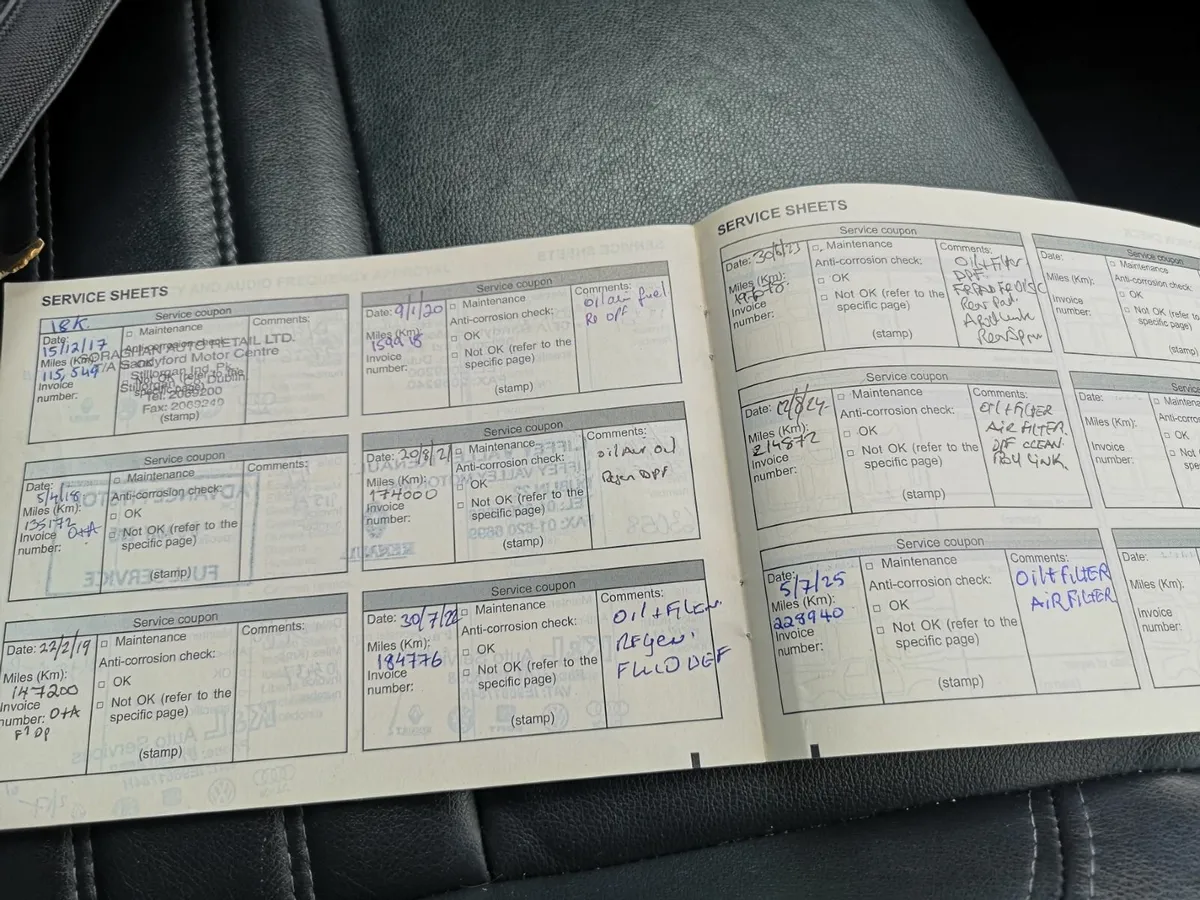 SERVICE SHEETS
Service coupon
18K
Date:
15/12/17
Miles (Km):
115,549
Invoice
number:
Maintenance
Anti-corrosion check:
OK
Not OK (refer to the
specific page)
(stamp)
AUTO RETAIL LTD.
T/A Sandyford Motor Centre
Stillorgan Ind. Pk.
Stillorgan, Co. Dublin.
Tel: 2069200
Fax: 2069249
Comments:
Service coupon
Date:
5/4/18
Miles (Km):
135172
Invoice O+A
number:
Maintenance
Anti-corrosion check:
OK
Not OK (refer to the
specific page)
(stamp)
Comments:
Service coupon
Date: 22/2/19
Miles (Km):
147200
Invoice
number: O+A
Maintenance
Anti-corrosion check:
OK
Not OK (refer to the
specific page)
(stamp)
Comments:
Service coupon
Date: 9/1/20
Miles (Km):
Invoice
number:
Maintenance
Anti-corrosion check:
OK
Not OK (refer to the
specific page)
(stamp)
Comments:
oil air fuel
Service coupon
Date: 20/8/21
Miles (Km):
174000
Invoice
number:
Maintenance
Anti-corrosion check:
OK
Not OK (refer to the
specific page)
(stamp)
Comments:
oil Air oil
Regen DPF
Service coupon
Date: 30/7/22
Miles (Km):
184776
Invoice
number:
Maintenance
Anti-corrosion check:
OK
Not OK (refer to the
specific page)
(stamp)
Comments:
Oil + Filter
Regen
FLUID DEF
SERVICE SHEETS
Service coupon
Date: 30/6/23
Miles (Km):
Invoice
number:
Maintenance
Anti-corrosion check:
OK
Not OK (refer to the
specific page)
(stamp)
Comments:
Oil + Filter
DPF
Rear Pad
Service coupon
Date: 12/8/24
Miles (Km):
214872
Invoice
number:
Maintenance
Anti-corrosion check:
OK
Not OK (refer to the
specific page)
(stamp)
Comments:
Oil + FILTER
AIR FILTER
DPF CLEAN
LINK
Service coupon
Date:
5/7/25
Miles (Km):
228940
Invoice
number:
Maintenance
Anti-corrosion check:
OK
Not OK (refer to the
specific page)
(stamp)
Comments:
Oil + FILTER
AIR FILTER
Service coupon
Date:
Miles (Km):
Invoice
number:
Maintenance
Anti-corrosion check:
OK
Not OK (refer to the
specific page)
(stamp)
Service
Date:
Miles (Km):
Invoice
number:
OK
Date:
Miles (Km):
Invoice
number: